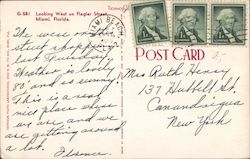 G-581 Looking West on Flagler Street,
Miami, Florida.
MIAMI BEACH
POST CARD
We were on this
street shopping
last Tuesday.
Weather is lovely
80° and so sunny.
This is a real
nice place where
we are and we
are getting around
a lot.
Florence.
Miss Ruth Henry
137 Hubbell St.
Canandaigua
New York